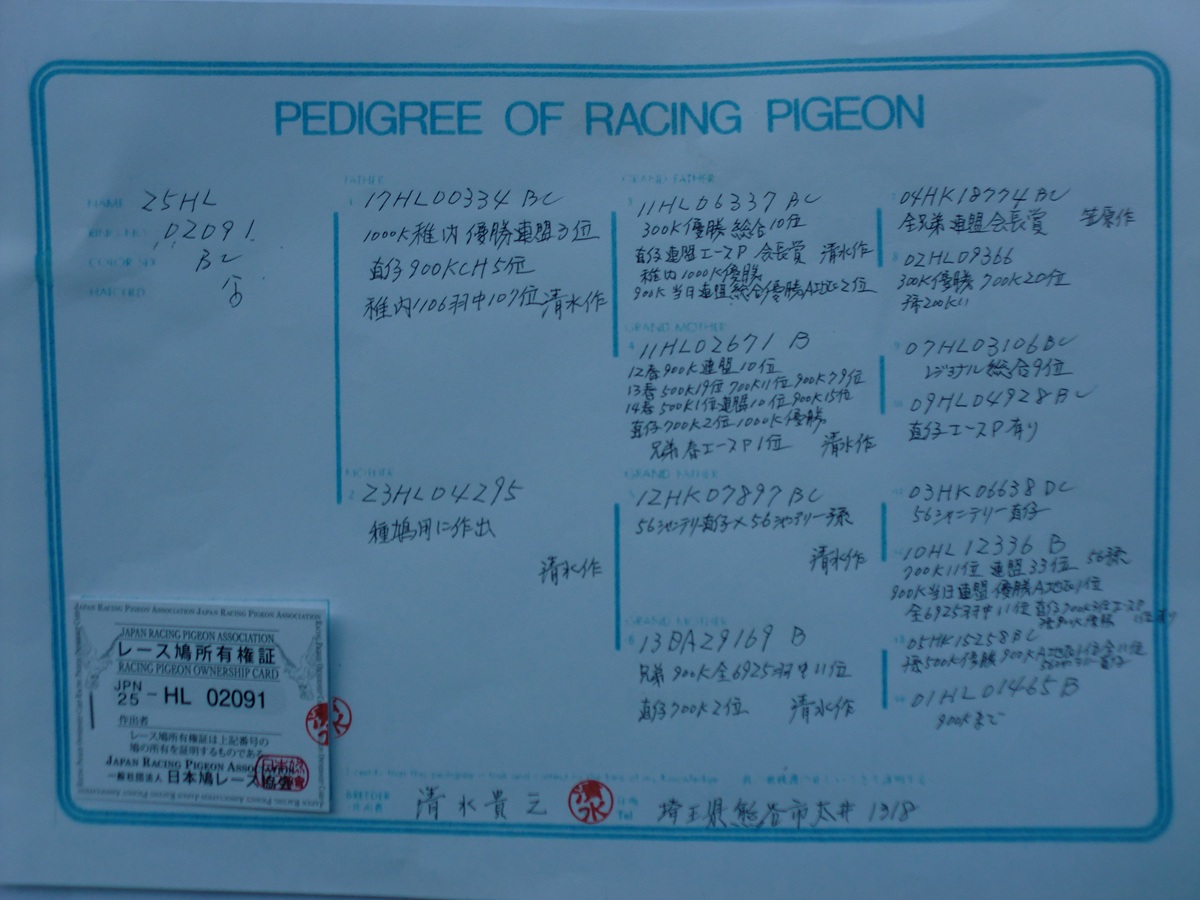 PEDIGREE OF RACING PIGEON
NAME 25HL
02091
COLOR SEX BC
♂
HATCHED
FATHER
1 17HL00334 BC
1000K 稚内 優勝 連盟3位
直仔 900KCH 5位
稚内1106羽中107位 清水作
MOTHER
2 23HL04295
種鳩用に作出
清水作
GRAND FATHER
3 11HL06337 BC
300K優勝 総合10位
直仔連盟エースP 会長賞 清水作
稚内1000K優勝
900K当日連盟総合優勝A地区2位
GRAND MOTHER
4 11HL02671 B
12春900K連盟10位
13春500K19位 700K11位 900K79位
14春500K1位連盟10位 900K15位
直仔700K2位 1000K優勝
兄弟 春エースP1位 清水作
GRAND FATHER
5 12HK07897 BC
56シャンテリー直仔×56シャンテリー孫
清水作
6 13BA29169 B
兄弟 900K全6925羽中11位
直仔700K2位 清水作
04HK18774 BC
全兄弟連盟会長賞
02HL09366
300K優勝 700K20位
07HL03106 BC
レジョナル総合9位
09HL04928 BC
直仔エースP有り
03HK06638 DC
56シャンテリー直仔
10HL12336 B
700K11位 連盟33位 56孫
900K当日連盟優勝A地区1位
全6925羽中11位
05HK15258 BC
孫500K優勝 900K A地区1位全11位
01HL01465 B
900Kまで
JAPAN RACING PIGEON ASSOCIATION
レース鳩所有権証
RACING PIGEON OWNERSHIP CARD
JPN
25 - HL 02091
作出者
レース鳩所有権証は上記番号の
鳩の所有を証明するものである
JAPAN RACING PIGEON ASSOCIATION
一般社団法人 日本鳩レース協会
BREEDER
作出者 清水貴
清水
Tel 埼玉県熊谷市太井1318